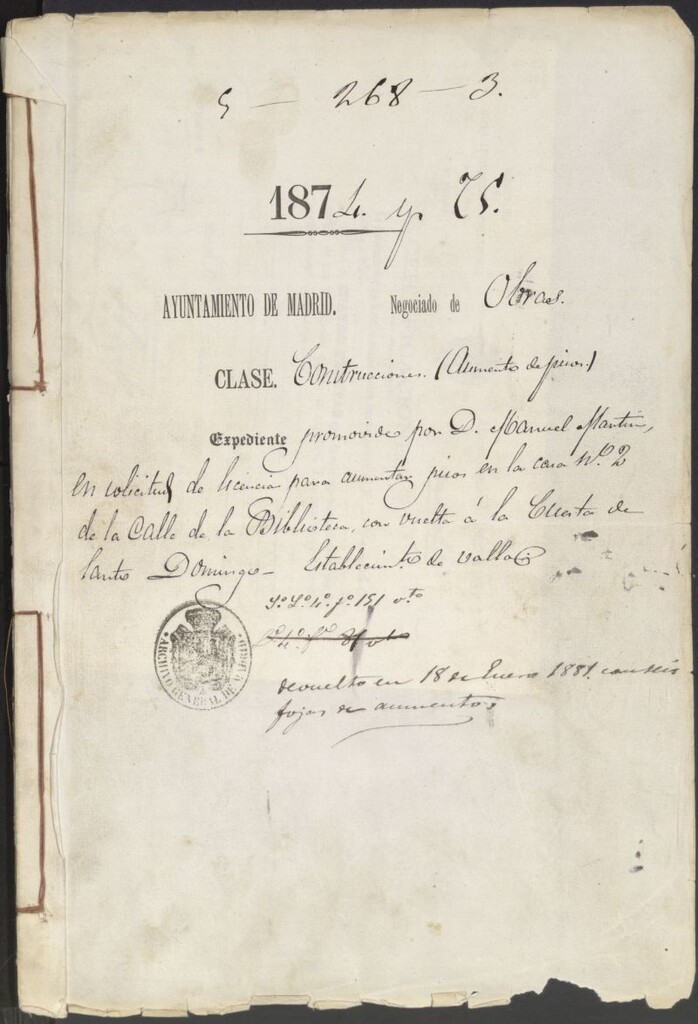 5 — 268 — 3.
1874. y 75.
AYUNTAMIENTO DE MADRID. Negociado de Obras.
CLASE. Construcciones. (Aumento de pisos.)
Expediente promovido por D. Manuel Martin,
en solicitud de licencia para aumentar pisos en la casa Nº. 2
de la Calle de la Biblioteca, con vuelta á la Cuesta de
Santo Domingo — Establecimto de valla
Lº 4º. fº 151 vto
devuelto en 18 de Enero 1881. con seis
fojas de aumento
ARCHIVO GENERAL DE MADRID